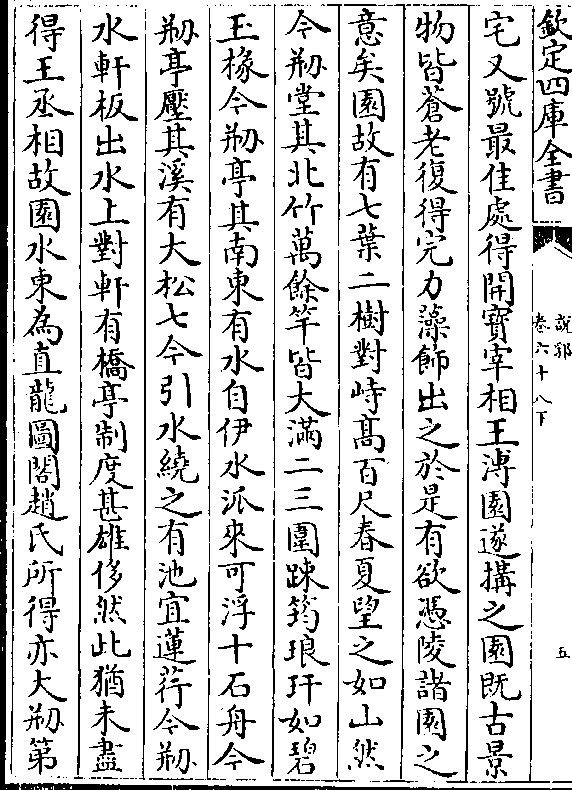 欽定四庫全書
說郛
卷六十八下
五
宅又號最佳處得開寳宰相王溥園遂搆之園既古景
物皆蒼老復得完力藻飾出之於是有欲憑陵諸園之
意矣園故有七葉二樹對峙髙百尺春夏望之如山然
今剏堂其北竹萬餘竿皆大滿二三圍踈筠琅玕如碧
玉椽今剏亭其南東有水自伊水派來可浮十石舟今
剏亭壓其溪有大松七今引水繞之有池宜蓮荇今剏
水軒板出水上對軒有橋亭制度甚雄侈然此猶未盡
得王丞相故園水東為直龍圖閣趙氏所得亦大剏第